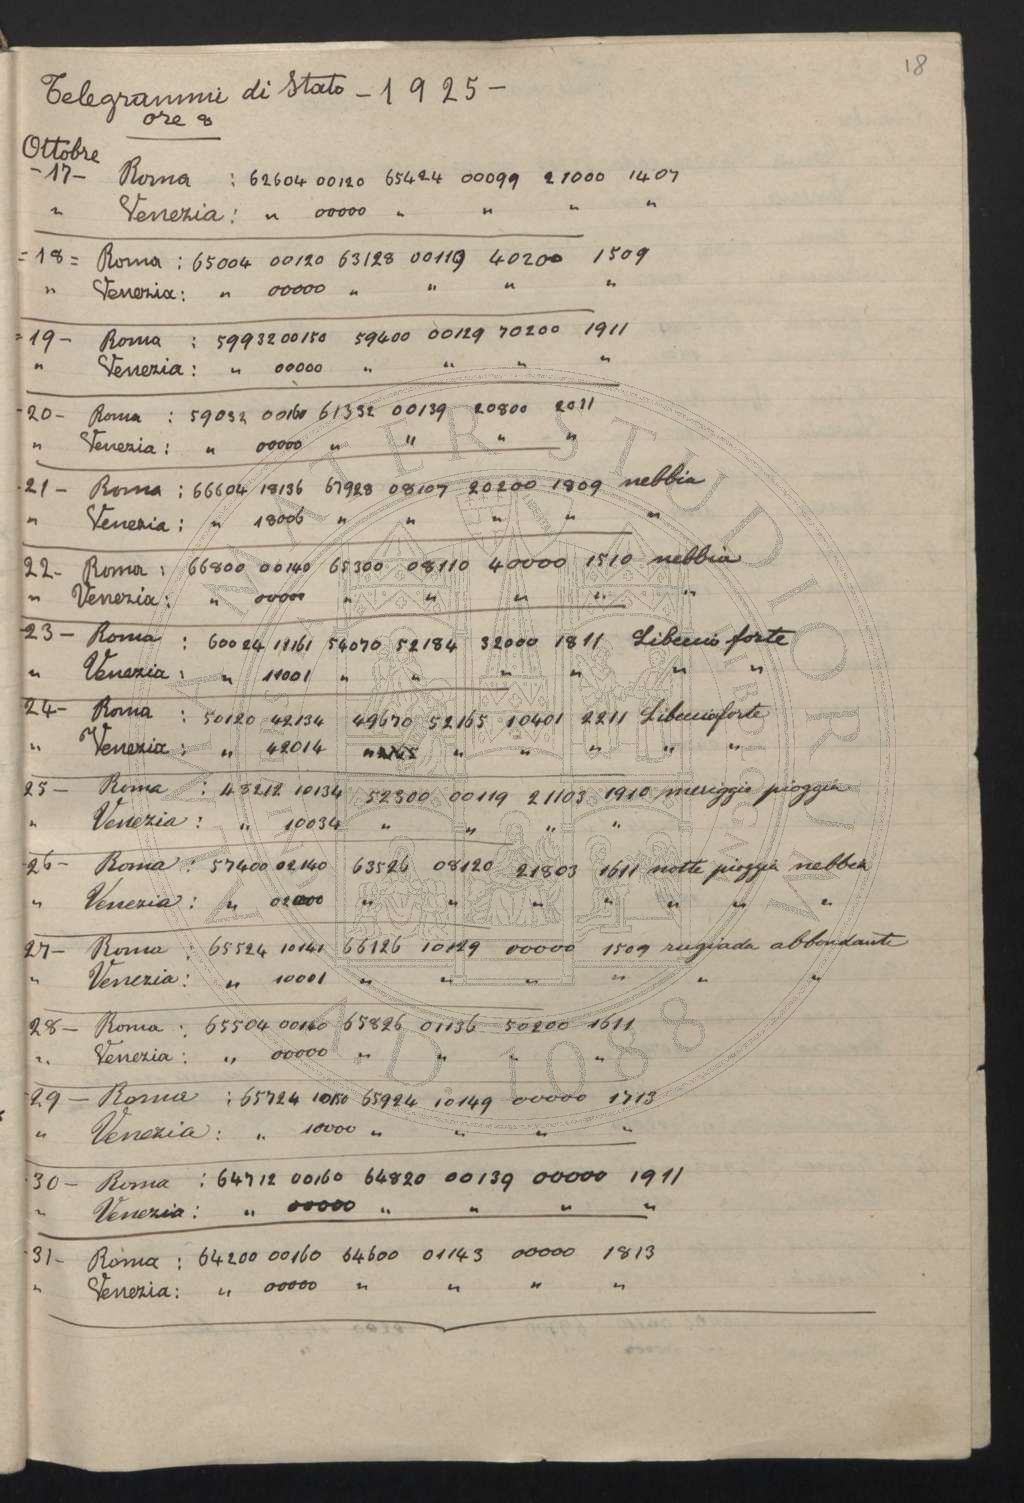 18
Telegrammi di Stato - 1925 -
ore 8
Ottobre
- 17 - Roma : 62604 00120 65424 00099 21000 1407
" Venezia : " 00000 " " " "
= 18 = Roma : 65004 00120 63128 00119 40200 1509
" Venezia : " 00000 " " " "
= 19 - Roma : 59932 00150 59400 00129 70200 1911
" Venezia : " 00000 " " " "
- 20 - Roma : 59032 00160 61332 00139 20800 2011
" Venezia : " 00000 " " " "
- 21 - Roma : 66604 18136 67928 08107 20200 1809 nebbia
" Venezia : " 18006 " " " " "
22 - Roma : 66800 00140 65300 08110 40000 1510 nebbia
" Venezia : " 00000 " " " " "
- 23 - Roma : 60024 11161 54070 52184 32000 1811 Libeccio forte
" Venezia : " 11001 " " " " " "
24 - Roma : 50120 42134 49670 52165 10401 2211 Libeccio forte
" Venezia : " 42014 " " " " " "
25 - Roma : 48212 10134 52300 00119 21103 1910 meriggio pioggia
" Venezia : " 10034 " " " "
- 26 - Roma : 57400 02140 63526 08120 21803 1611 notte pioggia nebbia
" Venezia : " 02000 " " " " " " "
27 - Roma : 65524 10141 66126 10129 00000 1509 rugiada abbondante
" Venezia : " 10001 " " " " " "
28 - Roma : 65504 00140 65826 01136 50200 1611
" Venezia : " 00000 " " " "
- 29 - Roma : 65724 10150 65924 10149 00000 1713
" Venezia : " 10000 " " " "
- 30 - Roma : 64712 00160 64820 00139 00000 1911
" Venezia : " 00000 " " " "
- 31 - Roma : 64200 00160 64600 01143 00000 1813
" Venezia : " 00000 " " " "
ALMA MATER STUDIORUM
A.D. 1088